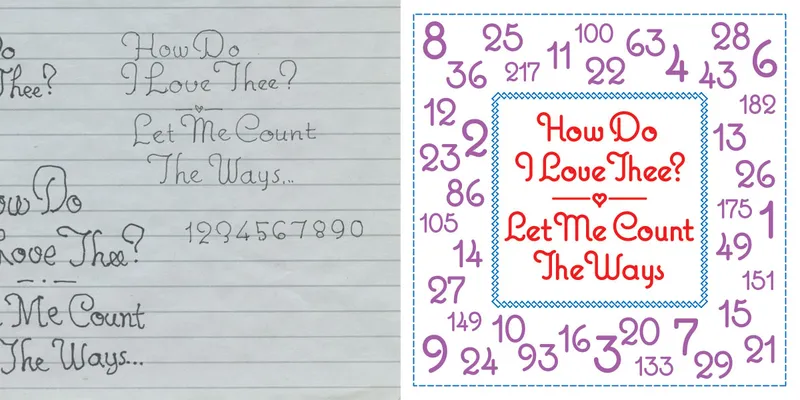 Do
Thee?
How Do
I Love Thee?
Let Me Count
The Ways...
ow Do
Love Thee?
Me Count
The Ways...
1234567890
8 25 11 100 63 28 6
36 217 22 4 43
12 2 182
13
23
86 26
105 175 1
14 49
27 151
149 10 16 20 7 15
9 24 93 3 133 29 21
How Do
I Love Thee?
Let Me Count
The Ways